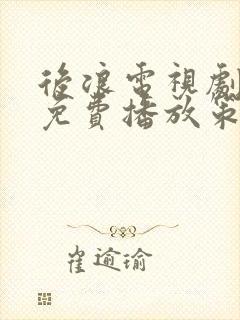 後浪電視劇
免費播放
崔逾瑜